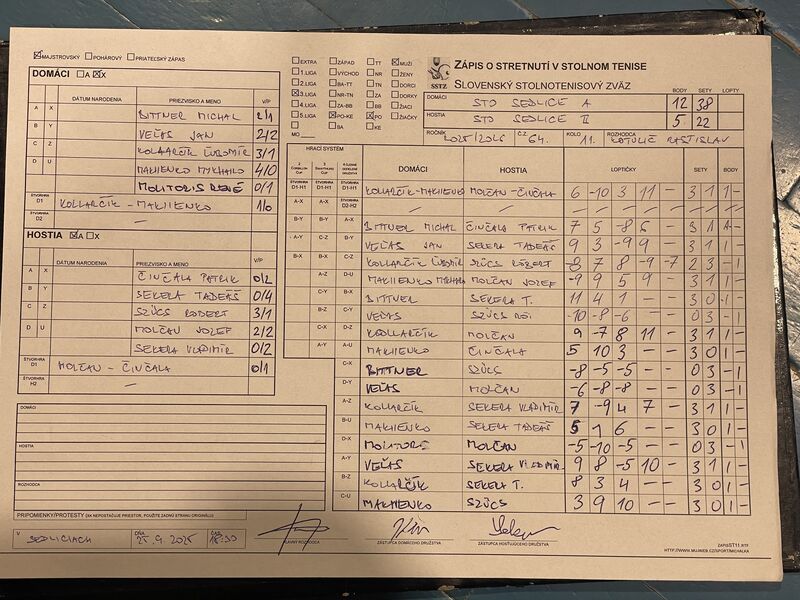 MAJSTROVSKÝ POHÁROVÝ PRIATEĽSKÝ ZÁPAS
DOMÁCI A X
DÁTUM NARODENIA PRIEZVISKO A MENO V/P
A X BITTNER MICHAL 2/1
B Y VEĽAS JAN 2/2
C Z KOLLARČÍK ĽUBOMÍR 3/1
D U MAKHENKO MYKHAILO 4/0
MOLITORIS RENÉ 0/1
ŠTVORHRA D1 KOLLARČÍK - MAKHENKO 1/0
ŠTVORHRA D2 —
HOSTIA A X
DÁTUM NARODENIA PRIEZVISKO A MENO V/P
A X ČINČALA PATRIK 0/2
B Y SEKERA TADEÁŠ 0/4
C Z SZÜCS ROBERT 3/1
D U MOLČAN JOZEF 2/2
SEKERA VLADIMÍR 0/2
ŠTVORHRA D1 MOLČAN - ČINČALA 0/1
ŠTVORHRA H2 —
DOMÁCI
HOSTIA
ROZHODCA
PRIPOMIENKY/PROTESTY (AK NEPOSTAČUJE PRIESTOR, POUŽITE ZADNÚ STRANU ORIGINÁLU)
V SEDLICIACH DŇA 25.9.2025 ČAS 18:30
HLAVNÝ ROZHODCA
ZÁSTUPCA DOMÁCEHO DRUŽSTVA
ZÁSTUPCA HOSŤUJÚCEHO DRUŽSTVA
EXTRA ZÁPAD TT MUŽI
1.LIGA VÝCHOD NR ŽENY
2.LIGA BA-TN ZA DORCI
3.LIGA NR-TN ZA DORKY
4.LIGA ZA-BB BB ŽIACI
5.LIGA PO-KE PO ŽIAČKY
BA KE
MO
SSTZ
ZÁPIS O STRETNUTÍ V STOLNOM TENISE
SLOVENSKÝ STOLNOTENISOVÝ ZVÄZ
BODY SETY LOPTY
DOMÁCI STO SEDLICE A 12 38
HOSTIA STO SEDLICE B 5 22
ROČNÍK 2025/2026 Č.Z. 64. KOLO 11. ROZHODCA KATULIČ RASTISLAV
HRACÍ SYSTÉM DOMÁCI HOSTIA LOPTIČKY SETY BODY
D1-H1 D1-H1 D1-H1 KOLLARČÍK-MAKHENKO MOLČAN - ČINČALA 6 -10 3 11 - 3 1 1 -
A-X A-X D2-H2 — — — — — — — — — — —
B-Y B-Y A-X BITTNER MICHAL ČINČALA PATRIK 7 5 -8 6 - 3 1 1 -
A-Y C-Z B-Y VEĽAS JAN SEKERA TADEÁŠ 9 3 -9 9 - 3 1 1 -
B-X B-X C-Z KOLLARČÍK ĽUBOMÍR SZÜCS RÓBERT -8 7 8 -9 -7 2 3 - 1
A-Z D-U MAKHENKO MYKHAILO MOLČAN JOZEF -9 9 5 9 - 3 1 1 -
C-Y B-X BITTNER SEKERA T. 11 4 1 - - 3 0 1 -
B-Z C-Y VEĽAS SZÜCS -10 -8 -6 - - 0 3 - 1
C-X D-Z KOLLARČÍK MOLČAN 9 -7 8 11 - 3 1 1 -
A-Y A-U MAKHENKO ČINČALA 5 10 3 - - 3 0 1 -
C-X BITTNER SZÜCS -8 -5 -5 - - 0 3 - 1
D-Y VEĽAS MOLČAN -6 -8 -8 - - 0 3 - 1
A-Z KOLLARČÍK SEKERA VLADIMÍR 7 -9 4 7 - 3 1 1 -
B-U MAKHENKO SEKERA TADEÁŠ 5 1 6 - - 3 0 1 -
D-X MOLČAN -5 -10 -5 - - 0 3 - 1
A-Y VEĽAS SEKERA VLADIMÍR 9 8 -5 10 - 3 1 1 -
B-Z KOLLARČÍK SEKERA T. 8 3 4 - - 3 0 1 -
C-U MAKHENKO SZÜCS 3 9 10 - - 3 0 1 -
ZAPISST11.RTF
HTTP://WWW.MUJWEB.CZ/SPORT/MICHALKA